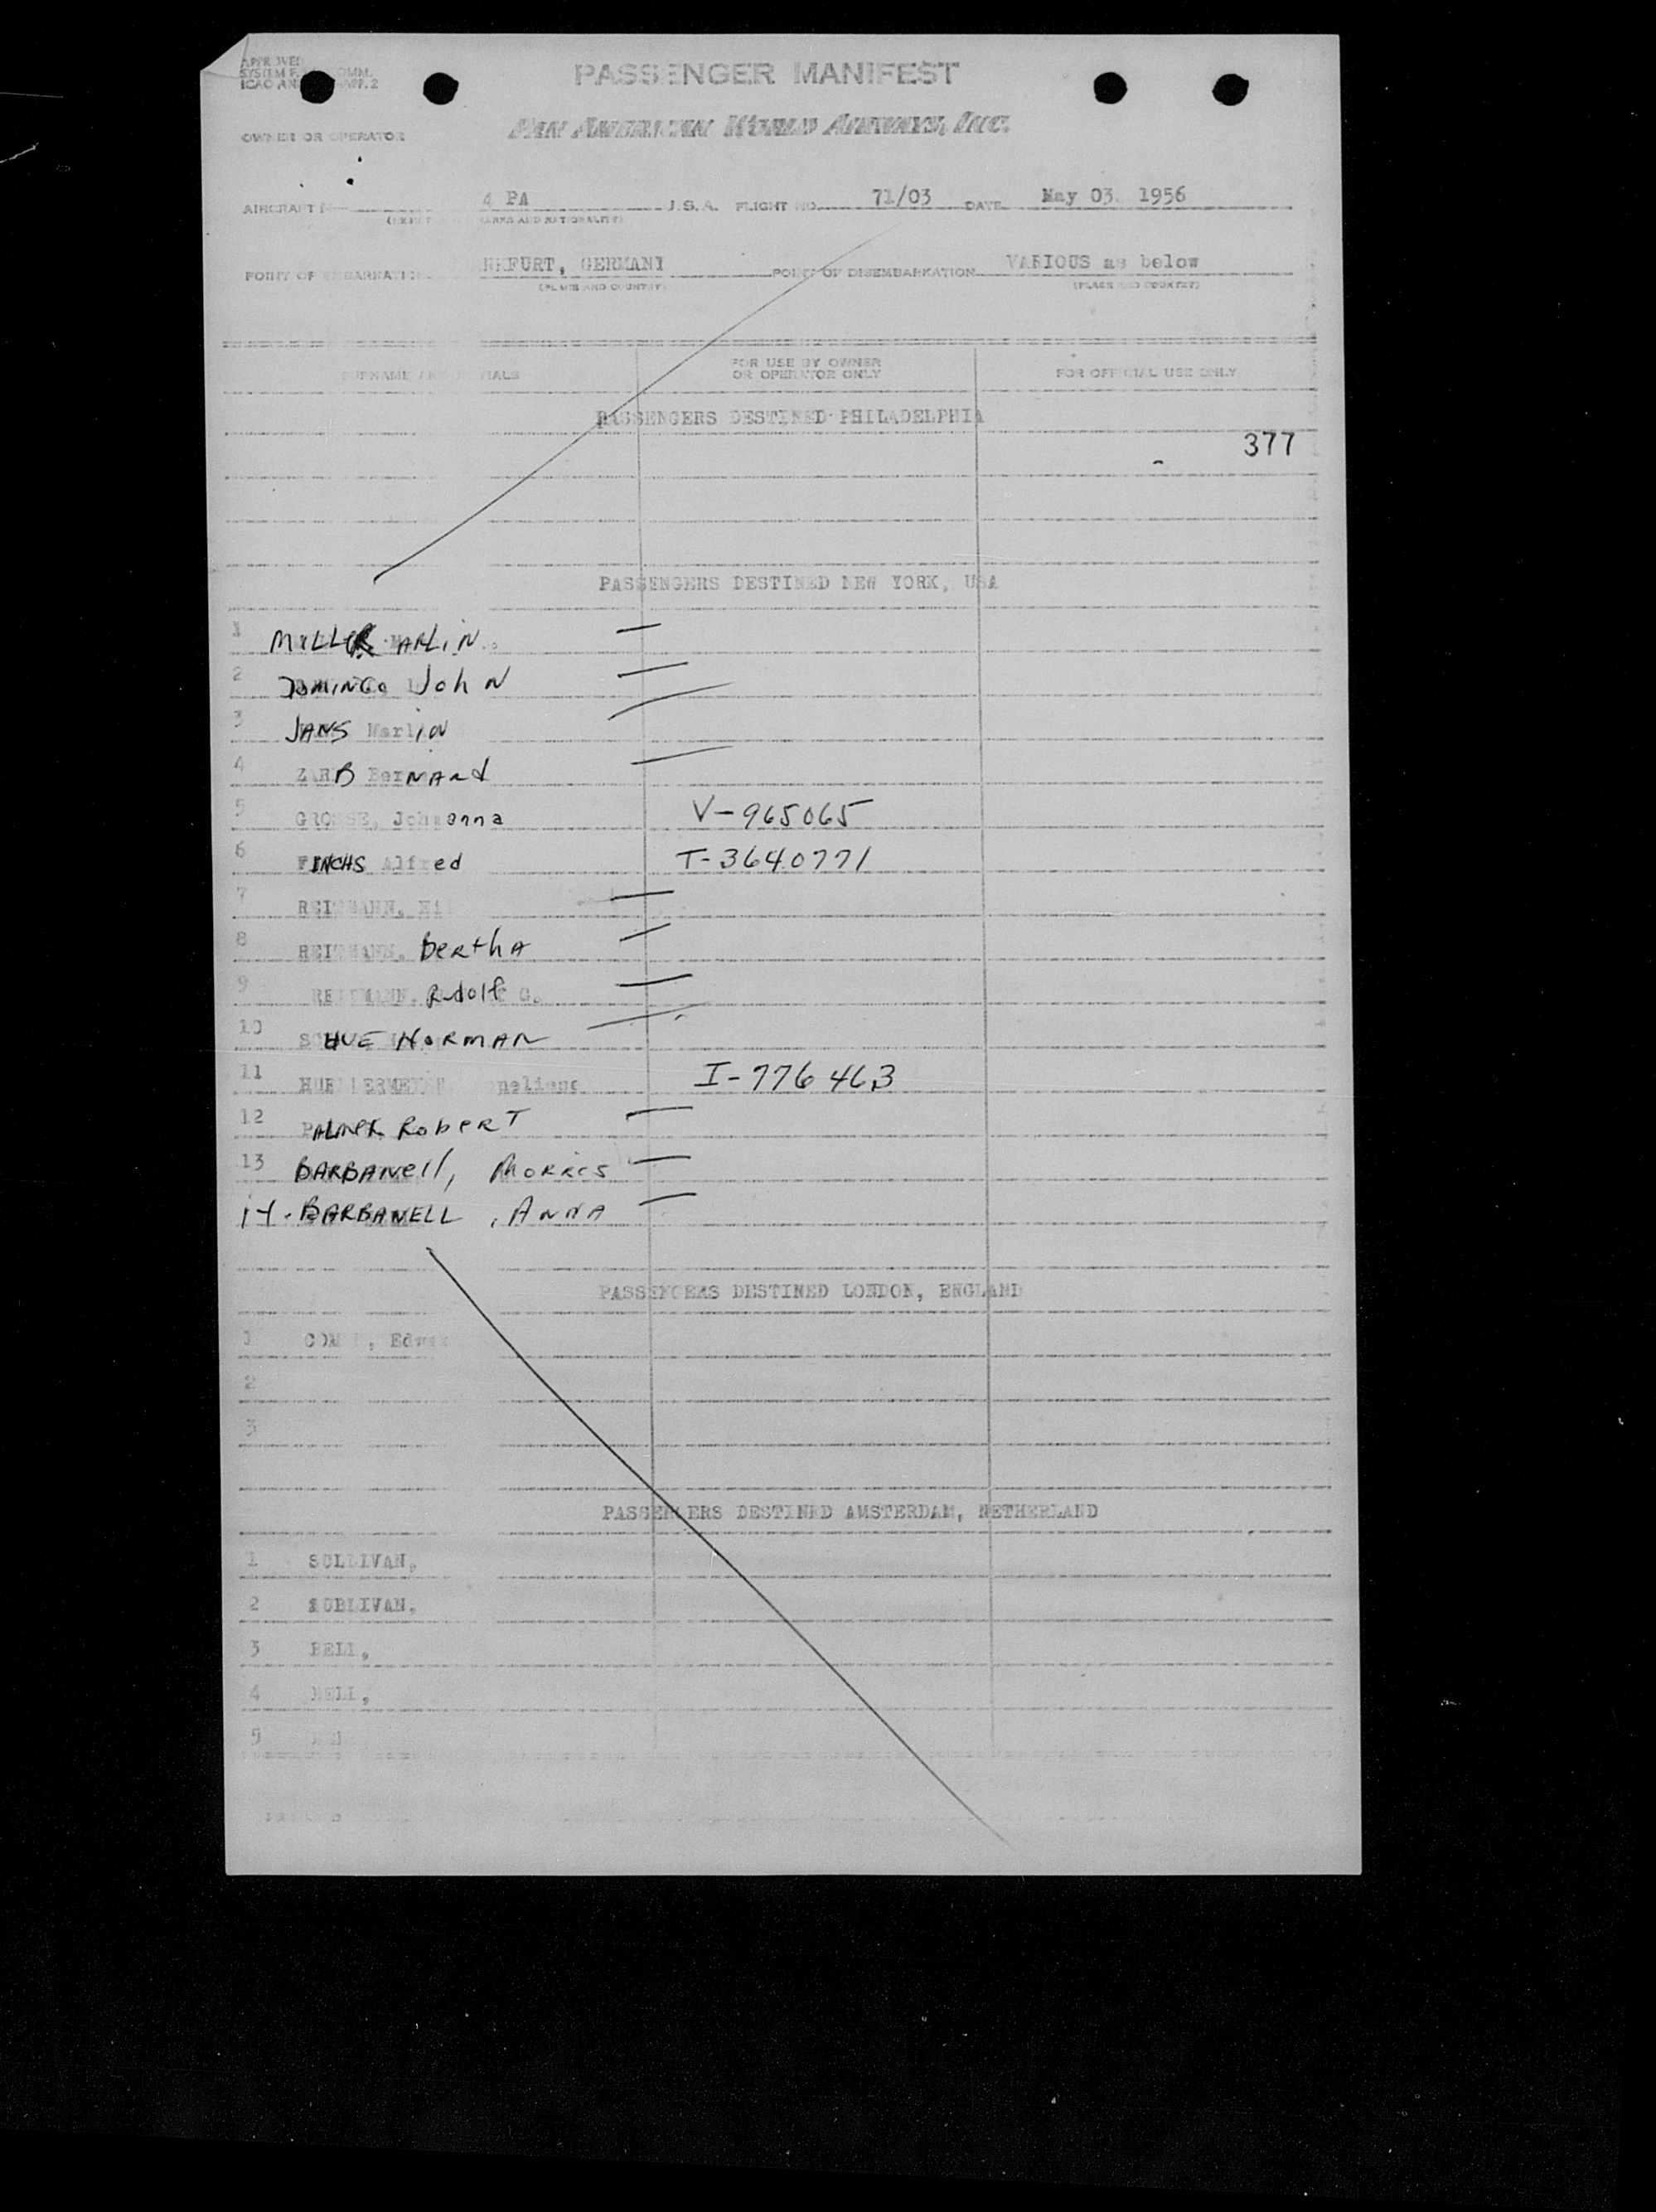 PASSENGER MANIFEST
OWNER OR OPERATOR PAN AMERICAN WORLD AIRWAYS, INC.
AIRCRAFT 4 PA U.S.A. FLIGHT NO. 71/03 DATE May 03. 1956
POINT OF EMBARKATION NKFURT, GERMANY POINT OF DISEMBARKATION VARIOUS as below
(PLACE AND COUNTRY) (PLACE AND COUNTRY)
SURNAME AND INITIALS FOR USE BY OWNER OR OPERATOR ONLY FOR OFFICIAL USE ONLY
PASSENGERS DESTINED PHILADELPHIA
377
PASSENGERS DESTINED NEW YORK, USA
1 MILLER MARLIN
2 DOMINGO JohN
3 JANS Marlin
4 ZARB BerNARd
5 GROSSE, Johanna V-965065
6 FINCHS Alfred T-3640771
7 REITMANN,
8 REITMANN, BerthA
9 REITMANN, Rudolf G.
10 HUE NORMAN
11 I-776463
12 PALMER RobeRT
13 BARBANell, MORRIS
14. BARBANELL, ANNA
PASSENGERS DESTINED LONDON, ENGLAND
1 Edwa
2
3
PASSENGERS DESTINED AMSTERDAM, NETHERLAND
1 SULLIVAN,
2 SULLIVAN,
3 BELL,
4 BELL,
5